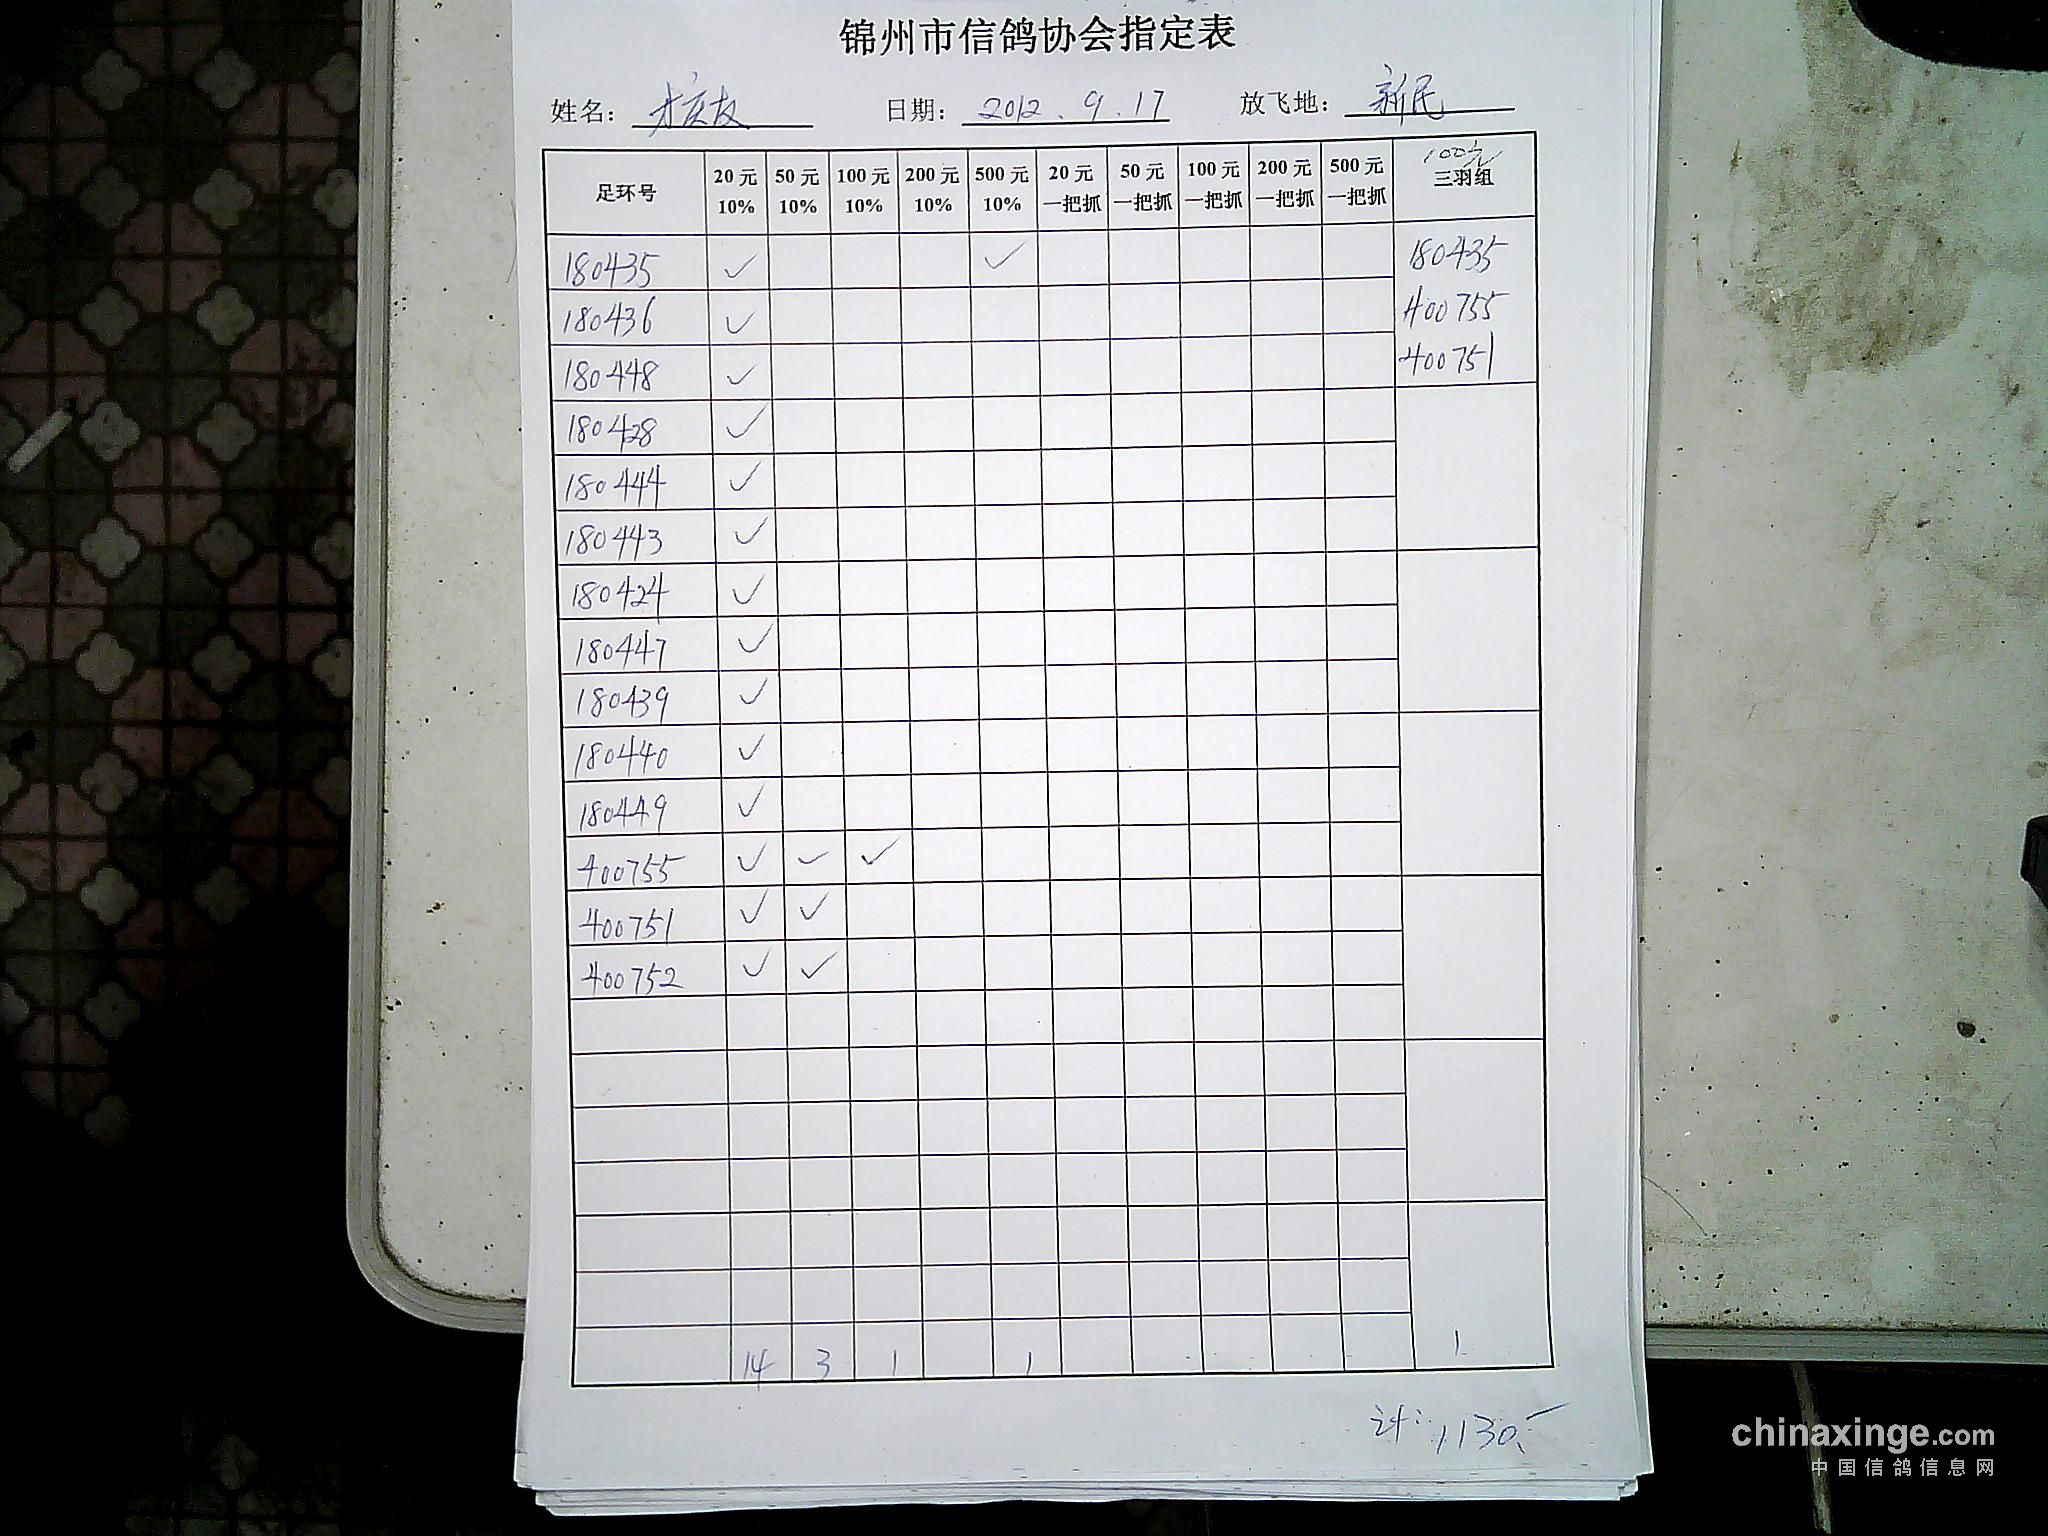 锦州市信鸽协会指定表
姓名： 日期：2012.9.17 放飞地：新民
足环号 20元 10% 50元 10% 100元 10% 200元 10% 500元 10% 20元 一把抓 50元 一把抓 100元 一把抓 200元 一把抓 500元 一把抓 100元 三羽组
180435 ✓ ✓ 180435
180436 ✓ 400755
180448 ✓ 400751
180428 ✓
180444 ✓
180443 ✓
180424 ✓
180447 ✓
180439 ✓
180440 ✓
180449 ✓
400755 ✓ ✓ ✓
400751 ✓ ✓
400752 ✓ ✓
14 3 1 1 1
计：1130.
chinaxinge.com
中国信鸽信息网